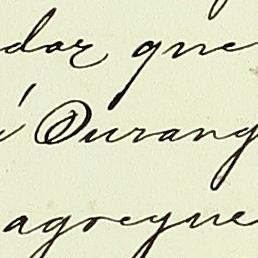 dar que
á Durang
agregue